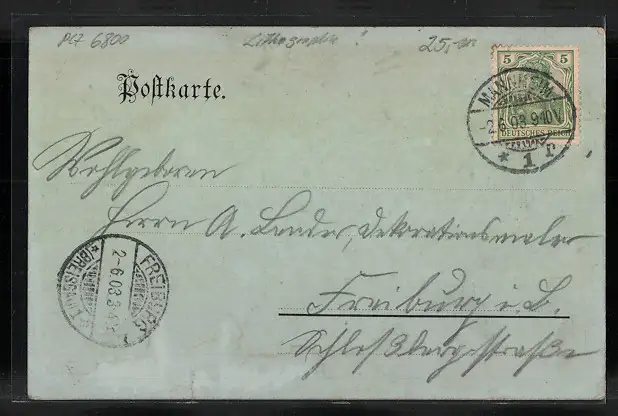 PLZ 6800 Lithographie! 25,-
5 5
DEUTSCHES REICH
MANNHEIM
2.6.03.9-10V
* 1 r
Postkarte.
Wohlgeboren
Herrn A. Lender, Dekorationsmaler
Freiburg i. B.
Schloßbergstraße
FREIBURG
2-6.03.3-4N
* (BREISGAU) 1